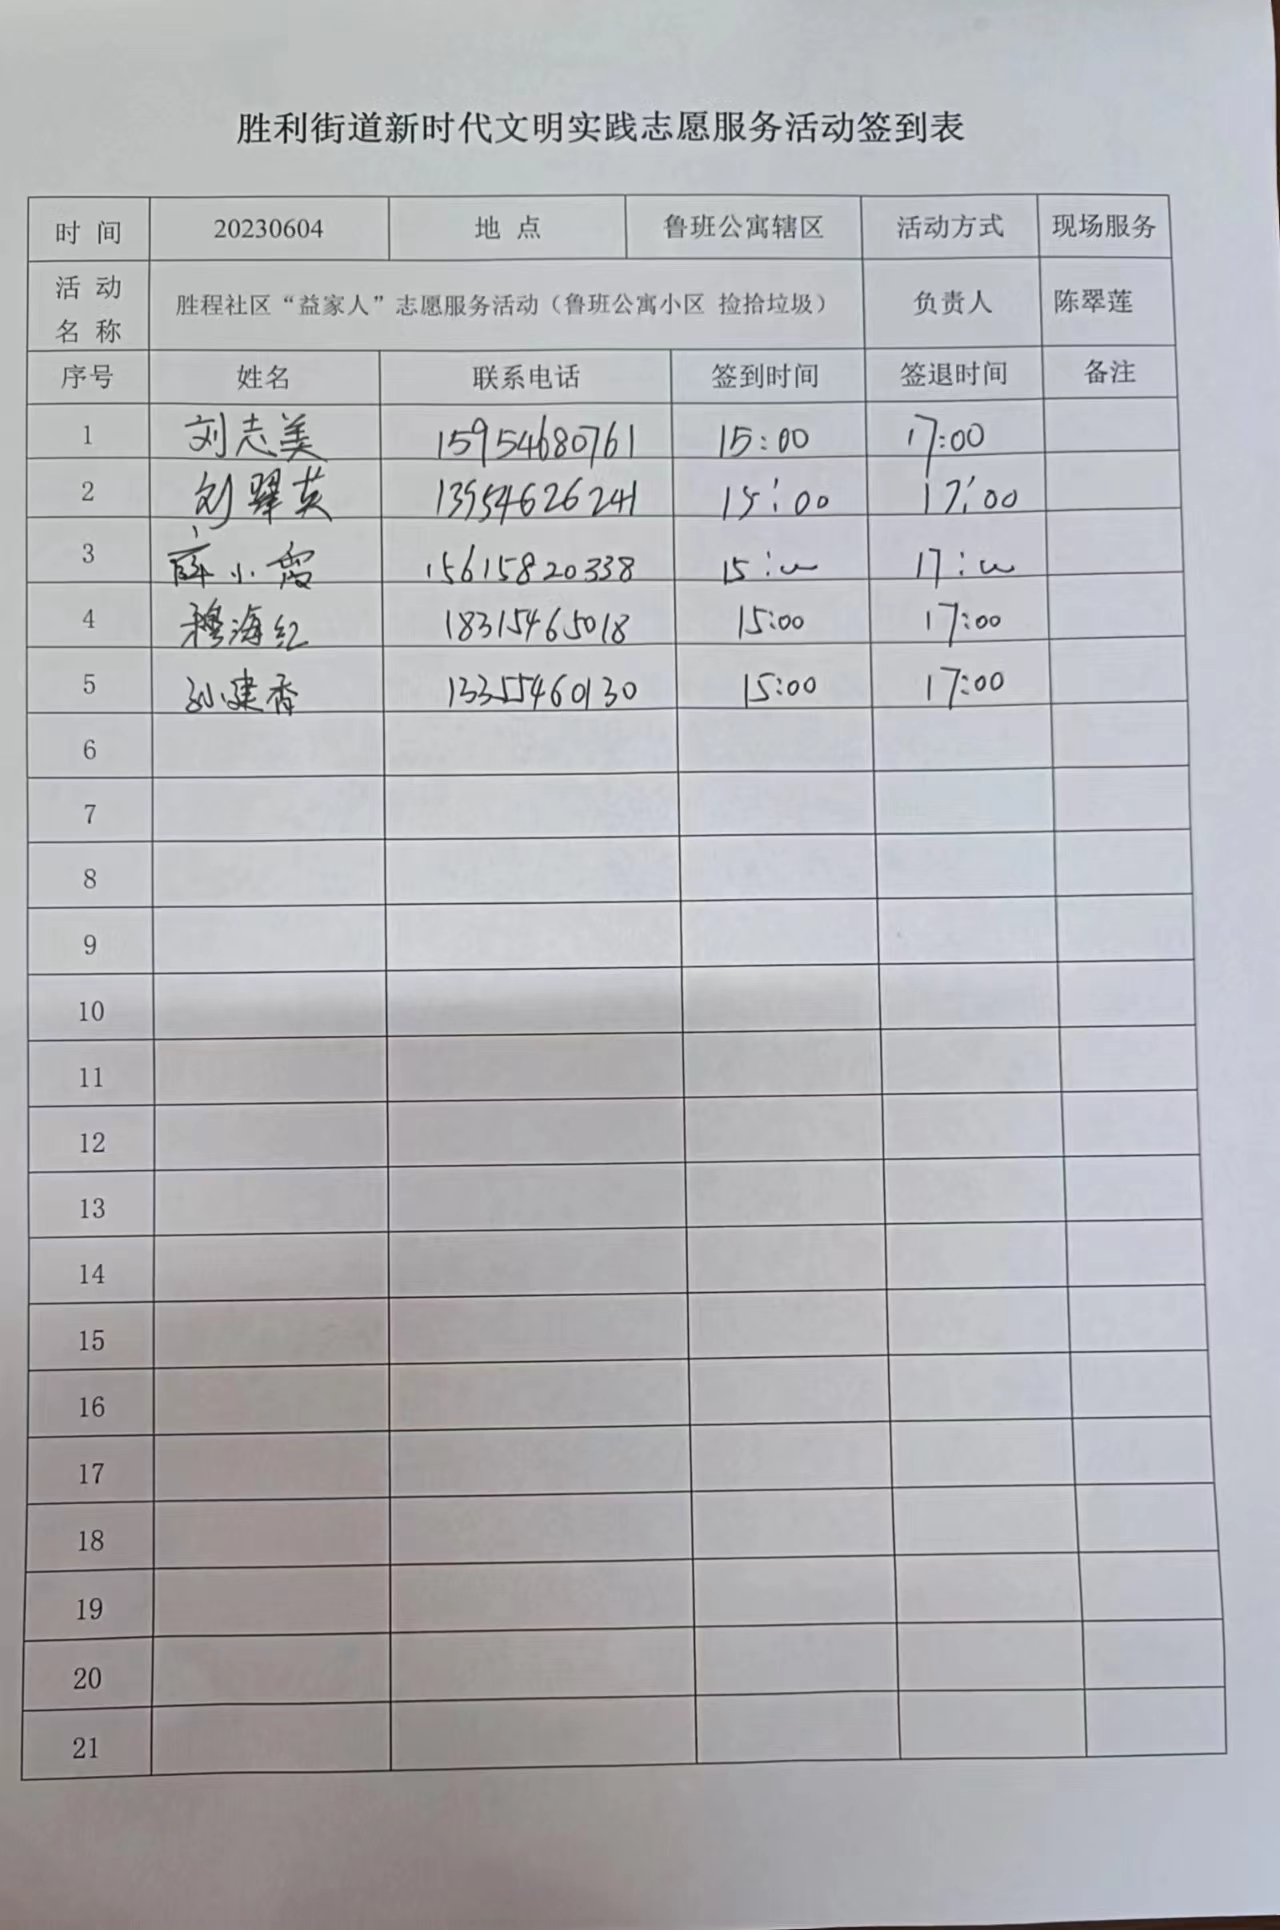 胜利街道新时代文明实践志愿服务活动签到表
时 间 20230604 地 点 鲁班公寓辖区 活动方式 现场服务
活 动 名 称 胜程社区“益家人”志愿服务活动（鲁班公寓小区 捡拾垃圾） 负责人 陈翠莲
序号 姓名 联系电话 签到时间 签退时间 备注
1 刘志美 15954680761 15:00 17:00
2 刘翠英 13954626241 15:00 17:00
3 薛小霞 15615820338 15:00 17:00
4 穆海红 18315465018 15:00 17:00
5 孙建香 13355460130 15:00 17:00
6
7
8
9
10
11
12
13
14
15
16
17
18
19
20
21